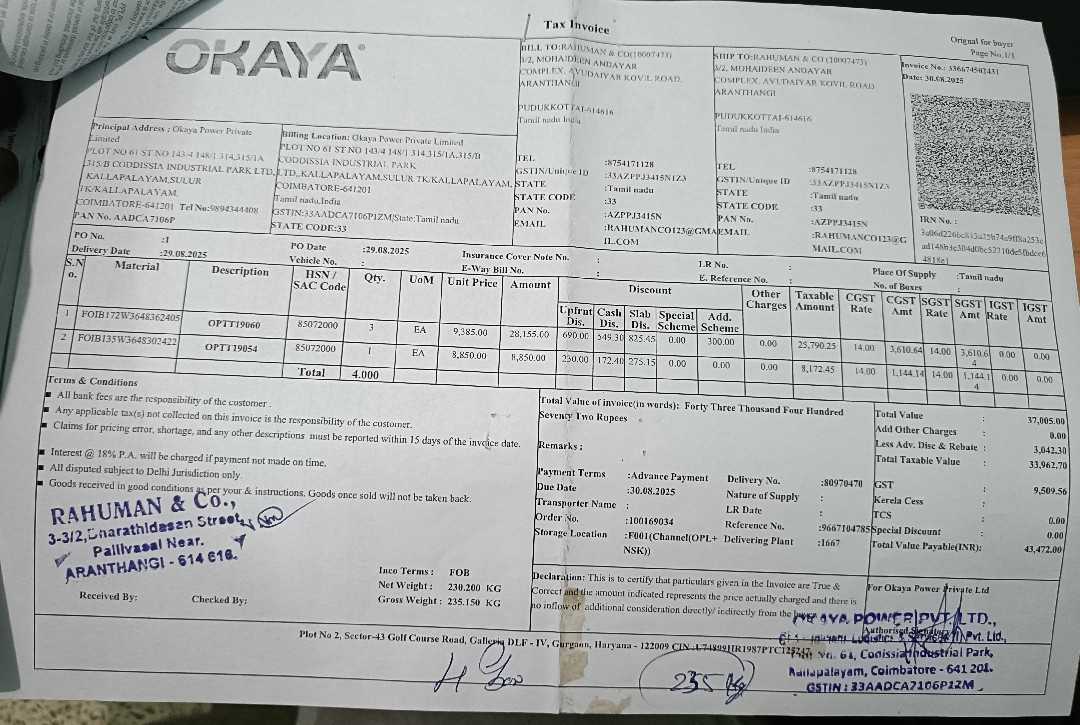 Tax Invoice
Orignal for buyer
Page No.1/1
OKAYA
BILL TO:RAHUMAN & CO(10007473)
3/2, MOHAIDEEN ANDAVAR
COMPLEX, AVUDAIYAR KOVIL ROAD,
ARANTHANGI
PUDUKKOTTAI-614616
Tamil nadu India
TEL :8754171128
GSTIN/Unique ID :33AZPPJ3415N1Z3
STATE :Tamil nadu
STATE CODE :33
PAN No. :AZPPJ3415N
EMAIL :RAHUMANCO123@GMAIL.COM
SHIP TO:RAHUMAN & CO (10007473)
3/2, MOHAIDEEN ANDAVAR
COMPLEX, AVUDAIYAR KOVIL ROAD
ARANTHANGI
PUDUKKOTTAI-614616
Tamil nadu India
TEL :8754171128
GSTIN/Unique ID :33AZPPJ3415N1Z3
STATE :Tamil nadu
STATE CODE :33
PAN No. :AZPPJ3415N
EMAIL :RAHUMANCO123@G
MAIL.COM
Invoice No.:
Date: 30.08.2025
IRN No. :
Principal Address : Okaya Power Private
Limited
PLOT NO 61 ST NO 143/4 148/1 314,315/1A
,315/B CODDISSIA INDUSTRIAL PARK LTD,
KALLAPALAYAM,SULUR
TK/KALLAPALAYAM,
COIMBATORE-641201 Tel No:9894344408
PAN No. AADCA7106P
Billing Location: Okaya Power Private Limited
PLOT NO 61 ST NO 143/4 148/1 314,315/1A,315/B
CODDISSIA INDUSTRIAL PARK
LTD,,KALLAPALAYAM,SULUR TK/KALLAPALAYAM,
COIMBATORE-641201
Tamil nadu,India
GSTIN:33AADCA7106P1ZM|State:Tamil nadu
STATE CODE:33
PO No. :1
Delivery Date :29.08.2025
PO Date :29.08.2025
Vehicle No. :
Insurance Cover Note No. :
E-Way Bill No. :
LR No. :
E. Reference No. :
Place Of Supply :Tamil nadu
No. of Boxes :
S.No. Material Description HSN / SAC Code Qty. UoM Unit Price Amount Discount Other Charges Taxable Amount CGST Rate CGST Amt SGST Rate SGST Amt IGST Rate IGST Amt
Upfrnt Dis. Cash Dis. Slab Dis. Special Scheme Add. Scheme
1 FOIB172W3648362405 OPTT19060 85072000 3 EA 9,385.00 28,155.00 690.00 549.30 825.45 0.00 300.00 0.00 25,790.25 14.00 3,610.64 14.00 3,610.64 0.00 0.00
2 FOIB135W3648302422 OPTT19054 85072000 1 EA 8,850.00 8,850.00 230.00 172.40 275.15 0.00 0.00 0.00 8,172.45 14.00 1,144.14 14.00 1,144.14 0.00 0.00
Total 4.000
Terms & Conditions
All bank fees are the responsibility of the customer .
Any applicable tax(s) not collected on this invoice is the responsibility of the customer.
Claims for pricing error, shortage, and any other descriptions must be reported within 15 days of the invoice date.
Interest @ 18% P.A. will be charged if payment not made on time.
All disputed subject to Delhi Jurisdiction only.
Goods received in good conditions as per your & instructions. Goods once sold will not be taken back.
RAHUMAN & Co.,
3-3/2, Bharathidasan Street,
Pallivasal Near.
ARANTHANGI - 614 616.
Received By:
Checked By:
Inco Terms : FOB
Net Weight : 230.200 KG
Gross Weight : 235.150 KG
Total Value of invoice(in words): Forty Three Thousand Four Hundred
Seventy Two Rupees
Remarks :
Payment Terms :Advance Payment
Due Date :30.08.2025
Transporter Name :
Order No. :100169034
Storage Location :F001(Channel(OPL+
NSK))
Delivery No. :80970470
Nature of Supply :
LR Date :
Reference No. :9667104785
Delivering Plant :1667
Total Value : 37,005.00
Add Other Charges : 0.00
Less Adv. Disc & Rebate : 3,042.30
Total Taxable Value : 33,962.70
GST : 9,509.56
Kerela Cess :
TCS : 0.00
Special Discount : 0.00
Total Value Payable(INR): 43,472.00
Declaration: This is to certify that particulars given in the Invoice are True &
Correct and the amount indicated represents the price actually charged and there is
no inflow of additional consideration directly/ indirectly from the
For Okaya Power Private Ltd
Authorised Signatory
OKAYA POWER PVT LTD.,
Pvt. Ltd.,
No. 61, Codissia Industrial Park,
Kallapalayam, Coimbatore - 641 201.
GSTIN : 33AADCA7106P1ZM
Plot No 2, Sector-43 Golf Course Road, Galleria DLF - IV, Gurgaon, Haryana - 122009 CIN :
235 Kg